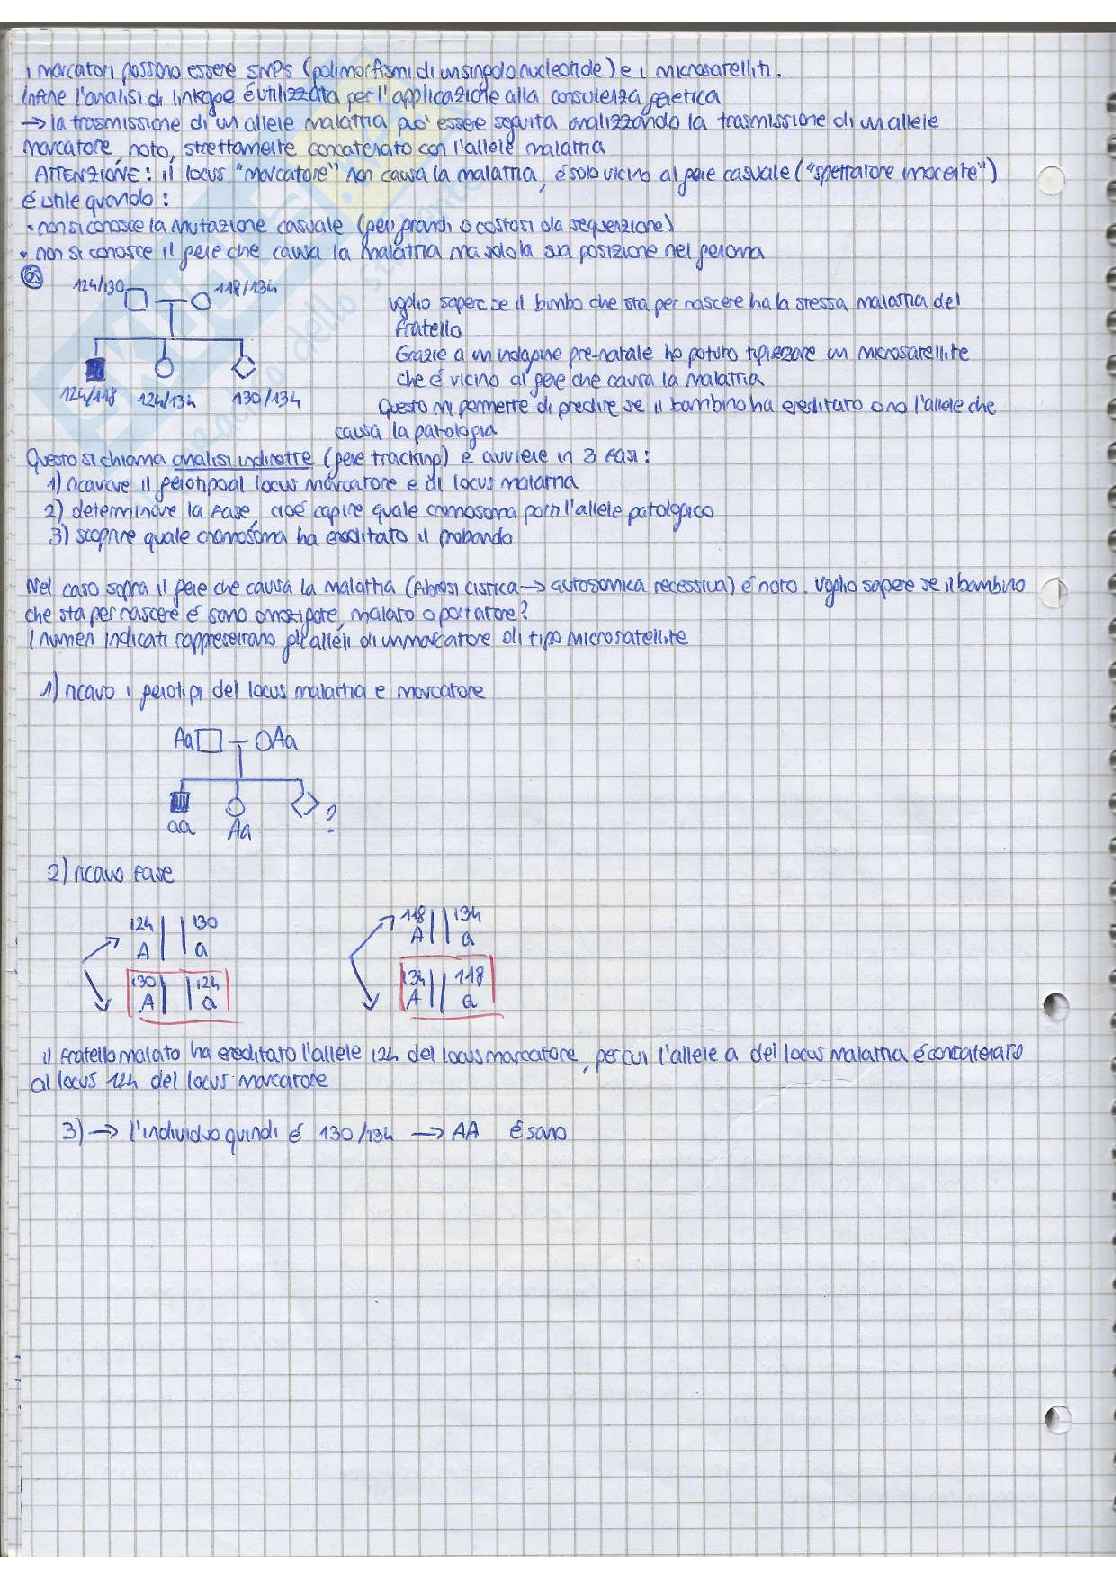 i marcatori possono essere SNPs (polimorfismi di un singolo nucleotide) e i microsatelliti.
Infine l'analisi di linkage é utilizzata per l'applicazione alla consulenza genetica
→ la trasmissione di un allele malattia puo' essere seguita analizzando la trasmissione di un allele
marcatore, noto, strettamente concatenato con l'allele malattia
ATTENZIONE: il locus "marcatore" non causa la malattia, é solo vicino al gene casuale ("spettatore innocente")
é utile quando:
• non si conosce la mutazione casuale (geni grandi o costosi da sequenziare)
• non si conosce il gene che causa la malattia ma solo la sua posizione nel genoma
es
124/130 118/134
voglio sapere se il bimbo che sta per nascere ha la stessa malattia del
fratello
Grazie a un indagine pre-natale ho potuto tipizzare un microsatellite
che é vicino al gene che causa la malattia
124/118 124/134 130/134
Questo mi permette di predire se il bambino ha ereditato o no l'allele che
causa la patologia
Questo si chiama analisi indirette (gene tracking) e avviene in 3 fasi:
1) ricavare il genotipo al locus marcatore e di locus malattia
2) determinare la fase, cioé capire quale cromosoma porti l'allele patologico
3) scoprire quale cromosoma ha ereditato il probando
Nel caso sopra il gene che causa la malattia (fibrosi cistica → autosomica recessiva) é noto. Voglio sapere se il bambino
che sta per nascere é sano omozigote, malato o portatore?
I numeri indicati rappresentano gli alleli di un marcatore di tipo microsatellite
1) ricavo i genotipi del locus malattia e marcatore
Aa Aa
aa Aa ?
2) ricavo fase
124 130 118 134
A a A a
130 124 134 118
A a A a
il fratello malato ha ereditato l'allele 124 del locus marcatore, per cui l'allele a del locus malattia é concatenato
al locus 124 del locus marcatore
3) → l'individuo quindi é 130/134 → AA é sano